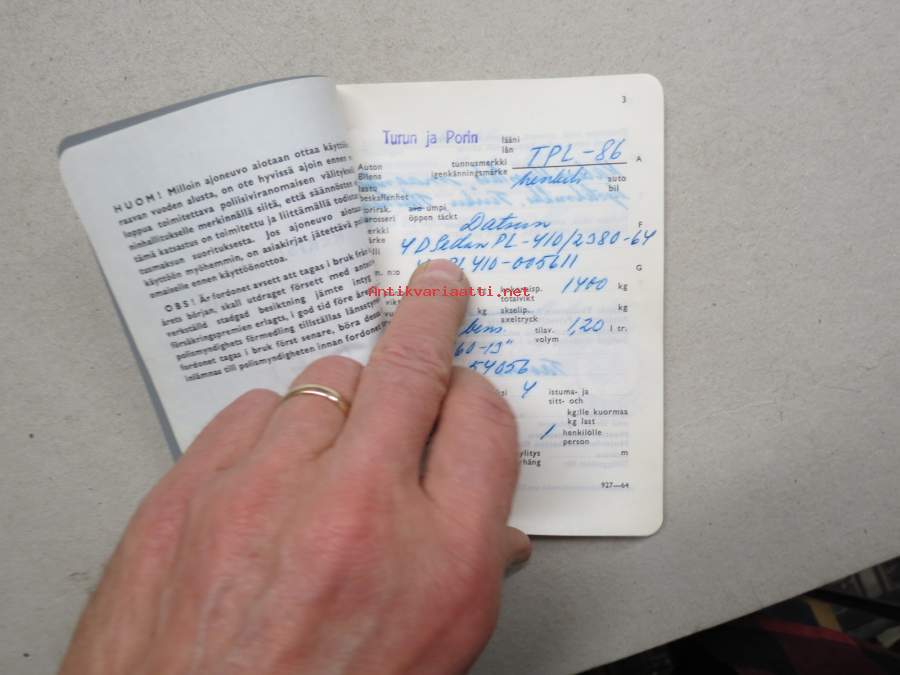 HUOM! Milloin ajoneuvo aiotaan ottaa käyttöön
raavan vuoden alusta, on ote hyvissä ajoin ennen
loppua toimitettava poliisiviranomaisen välityksellä
ninhallitukselle merkinnällä siitä, että säännösten
tämä katsastus on toimitettu ja liittämällä todistus
tusmaksun suorituksesta. Jos ajoneuvo aiotaan
käyttöön myöhemmin, on asiakirjat jätettävä
omaiselle ennen käyttöönottoa.
OBS! Är fordonet avsett att tagas i bruk från
årets början, skall utdraget försett med
verkställd stadgad besiktning jämte intyg
försäkringspremien erlagts, i god tid före
polismyndighets förmedling tillställas
fordonet tagas i bruk först senare, böra dessa
inlämnas till polismyndigheten innan fordonet
3
Turun ja Porin lääni
län
Auton tunnusmerkki TPL-86 A
Bilens igenkänningsmärke
laatu henkilö auto
beskaffenhet bil
umpi
öppen täckt
Datsun F
4D Sedan PL-410/2380-64
410-005611 G
Antikvariaatti.net
totalvikt 1400 kg
kg akselip. kg
axeltryck
bens. tilav. 1,20 l tr.
volym
60-13"
54056
4 istuma- ja
sitt- och
kg:lle kuormaa
kg last
1 henkilölle
person
m
927—64